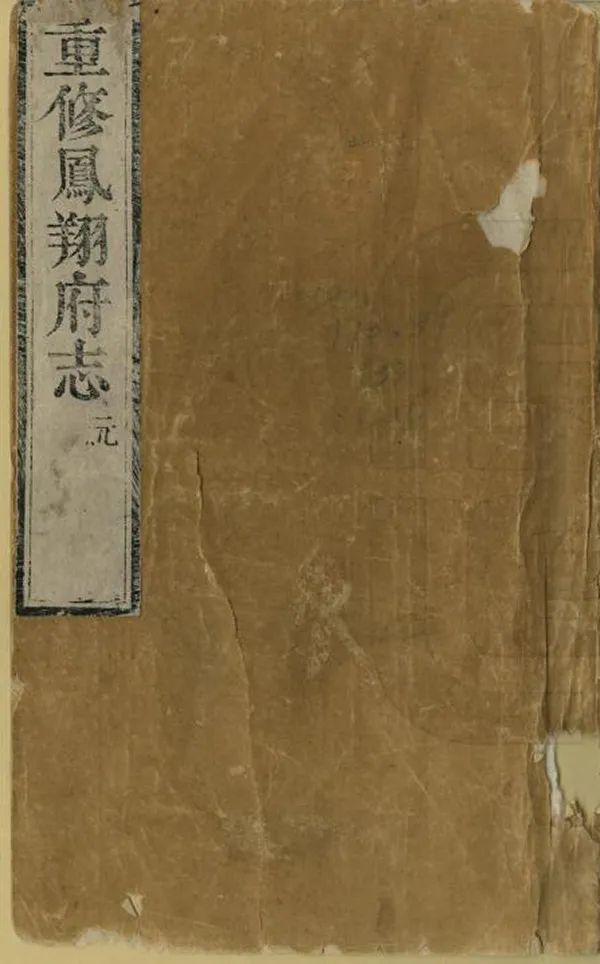 重修鳳翔府志